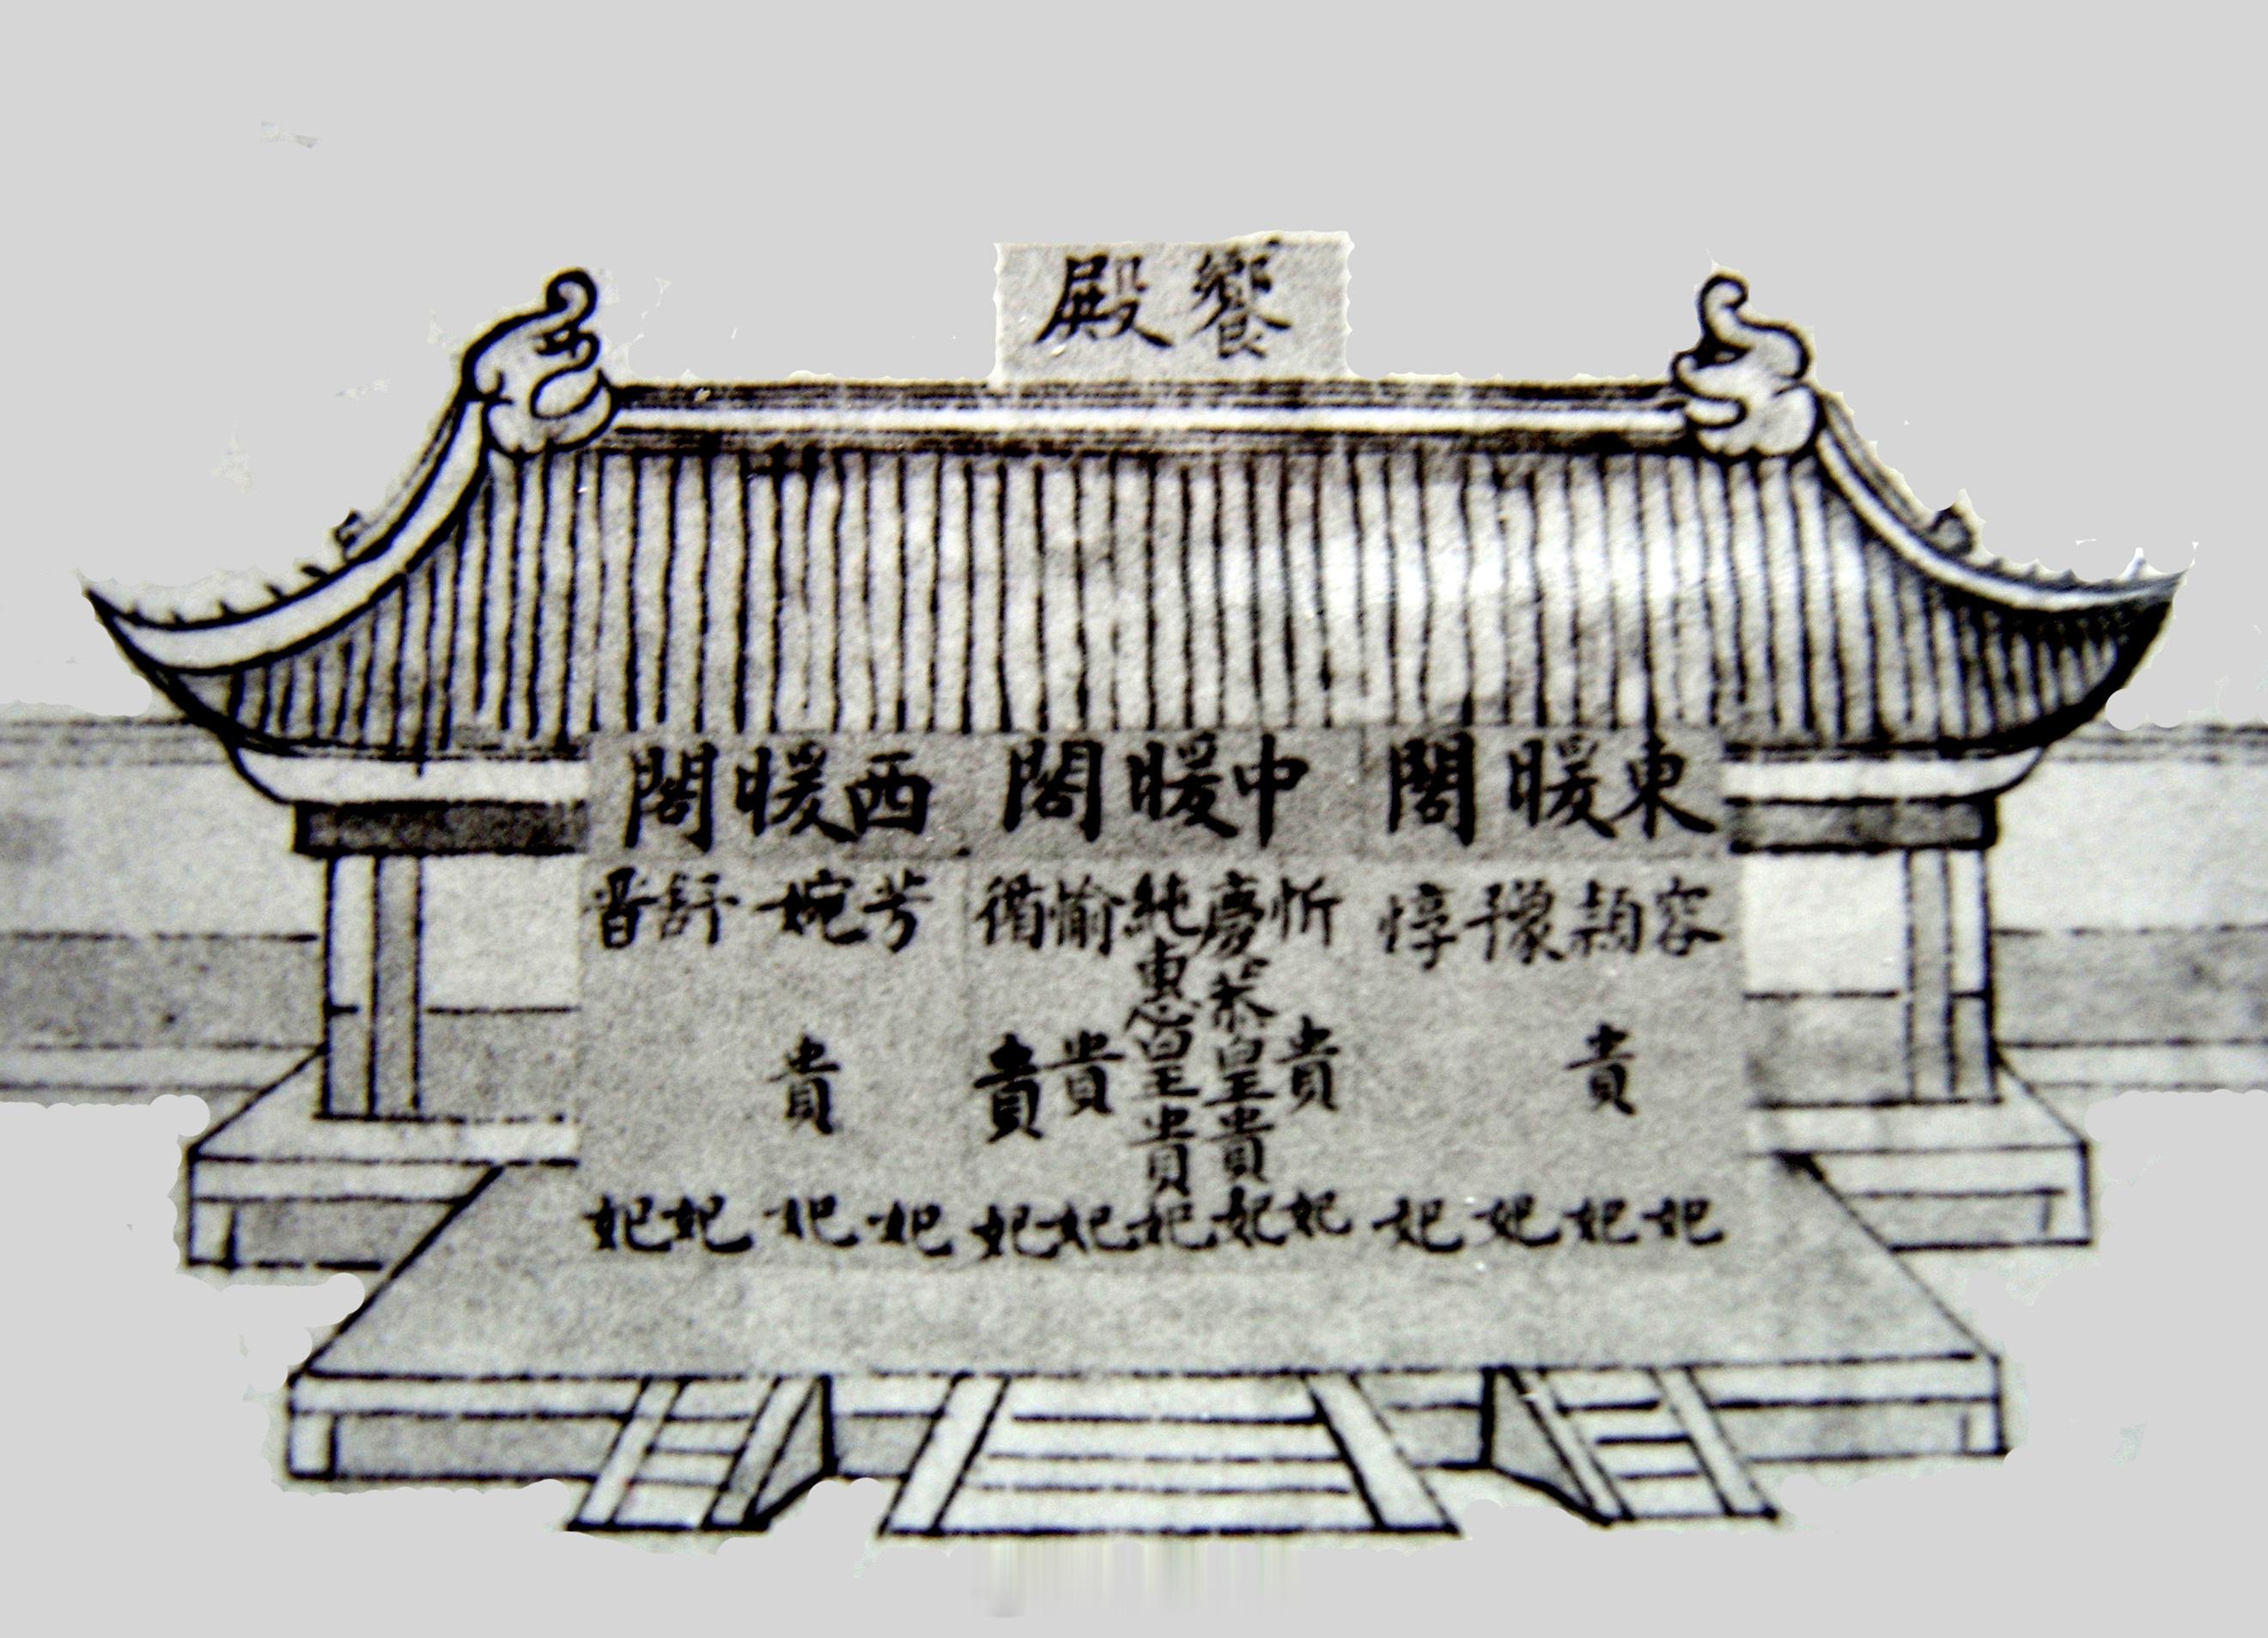 饗殿
東暖閣
容妃
穎貴妃
豫妃
惇妃
中暖閣
忻貴妃
慶恭皇貴妃
純惠皇貴妃
愉貴妃
循貴妃
西暖閣
芳妃
婉貴妃
舒妃
晋妃